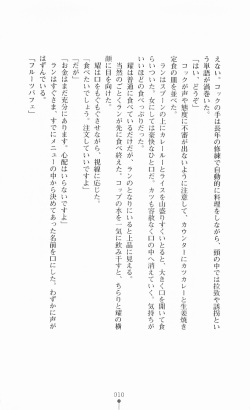 えない。コックの手は長年の修練で自動的に料理をしながら、頭の中では拉致や誘拐とい
う単語が渦巻いた。
「はい、どうぞ」
コックが声や態度に不審が出ないように注意して、カウンターにカツカレーと生姜焼き
定食の皿を並べた。
ランはスプーンの上にカレールーとライスを山盛りすくいとると、大きく口を開いて食
らいついた。女にしては豪快なひと口だ。カツも容赦なく口の中へ消えていく、気持ちが
いいほどの食べっぷりだった。
曜は普通に食べているだけだが、ランのとなりにいると上品に見える。
当然のごとくランが先に食べ終えた。コップの水を一気に飲み干すと、ちらりと曜の横
顔に目を向けた。
曜は口をもぐもぐさせながら、視線に応じた。
「食べたいでしょう。注文していいですよ」
「だが」
「お金はまだ充分にあります。心配はいらないですよ」
ランはすぐさま、すでにメニューの中から決めてあった名前を口にした。わずかに声が
はずんでいる。
「フルーツパフェ」
010